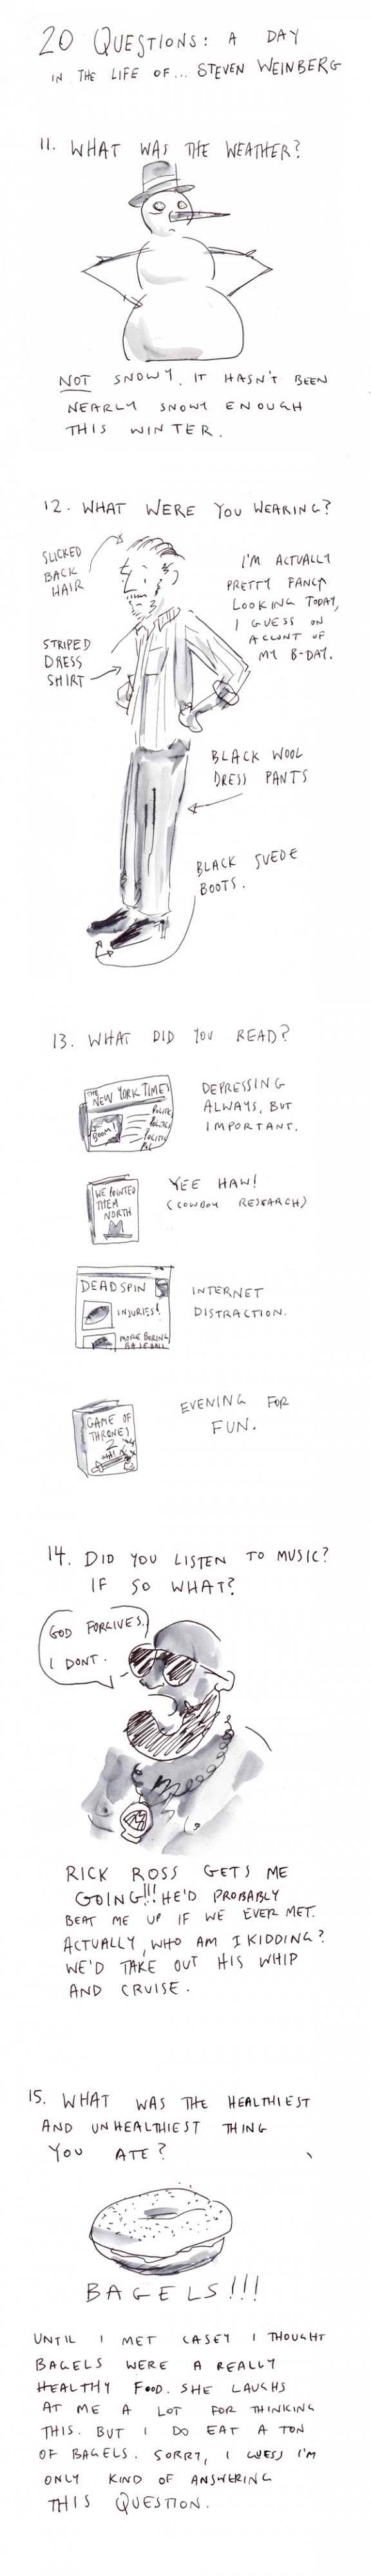 20 QUESTIONS: A DAY
IN THE LIFE OF... STEVEN WEINBERG
11. WHAT WAS THE WEATHER?
NOT SNOWY. IT HASN'T BEEN
NEARLY SNOWY ENOUGH
THIS WINTER.
12. WHAT WERE YOU WEARING?
SLICKED
BACK
HAIR
I'M ACTUALLY
PRETTY FANCY
LOOKING TODAY,
I GUESS ON
ACCOUNT OF
MY B-DAY.
STRIPED
DRESS
SHIRT
BLACK WOOL
DRESS PANTS
BLACK SUEDE
BOOTS.
13. WHAT DID YOU READ?
THE
NEW YORK TIMES
BOOM!
POLITIC
POLITIC
POLITIC
POL
DEPRESSING
ALWAYS, BUT
IMPORTANT.
WE POINTED
THEM
NORTH
YEE HAW!
(COWBOY RESEARCH)
DEADSPIN
INJURIES!
MORE BORING
BASEBALL
INTERNET
DISTRACTION.
GAME OF
THRONES
2
EVENING FOR
FUN.
14. DID YOU LISTEN TO MUSIC?
IF SO WHAT?
GOD FORGIVES.
I DONT.
RICK ROSS GETS ME
GOING!!! HE'D PROBABLY
BEAT ME UP IF WE EVER MET.
ACTUALLY, WHO AM I KIDDING?
WE'D TAKE OUT HIS WHIP
AND CRUISE.
15. WHAT WAS THE HEALTHIEST
AND UNHEALTHIEST THING
YOU ATE?
BAGELS!!!
UNTIL I MET CASEY I THOUGHT
BAGELS WERE A REALLY
HEALTHY FOOD. SHE LAUGHS
AT ME A LOT FOR THINKING
THIS. BUT I DO EAT A TON
OF BAGELS. SORRY, I GUESS I'M
ONLY KIND OF ANSWERING
THIS QUESTION.